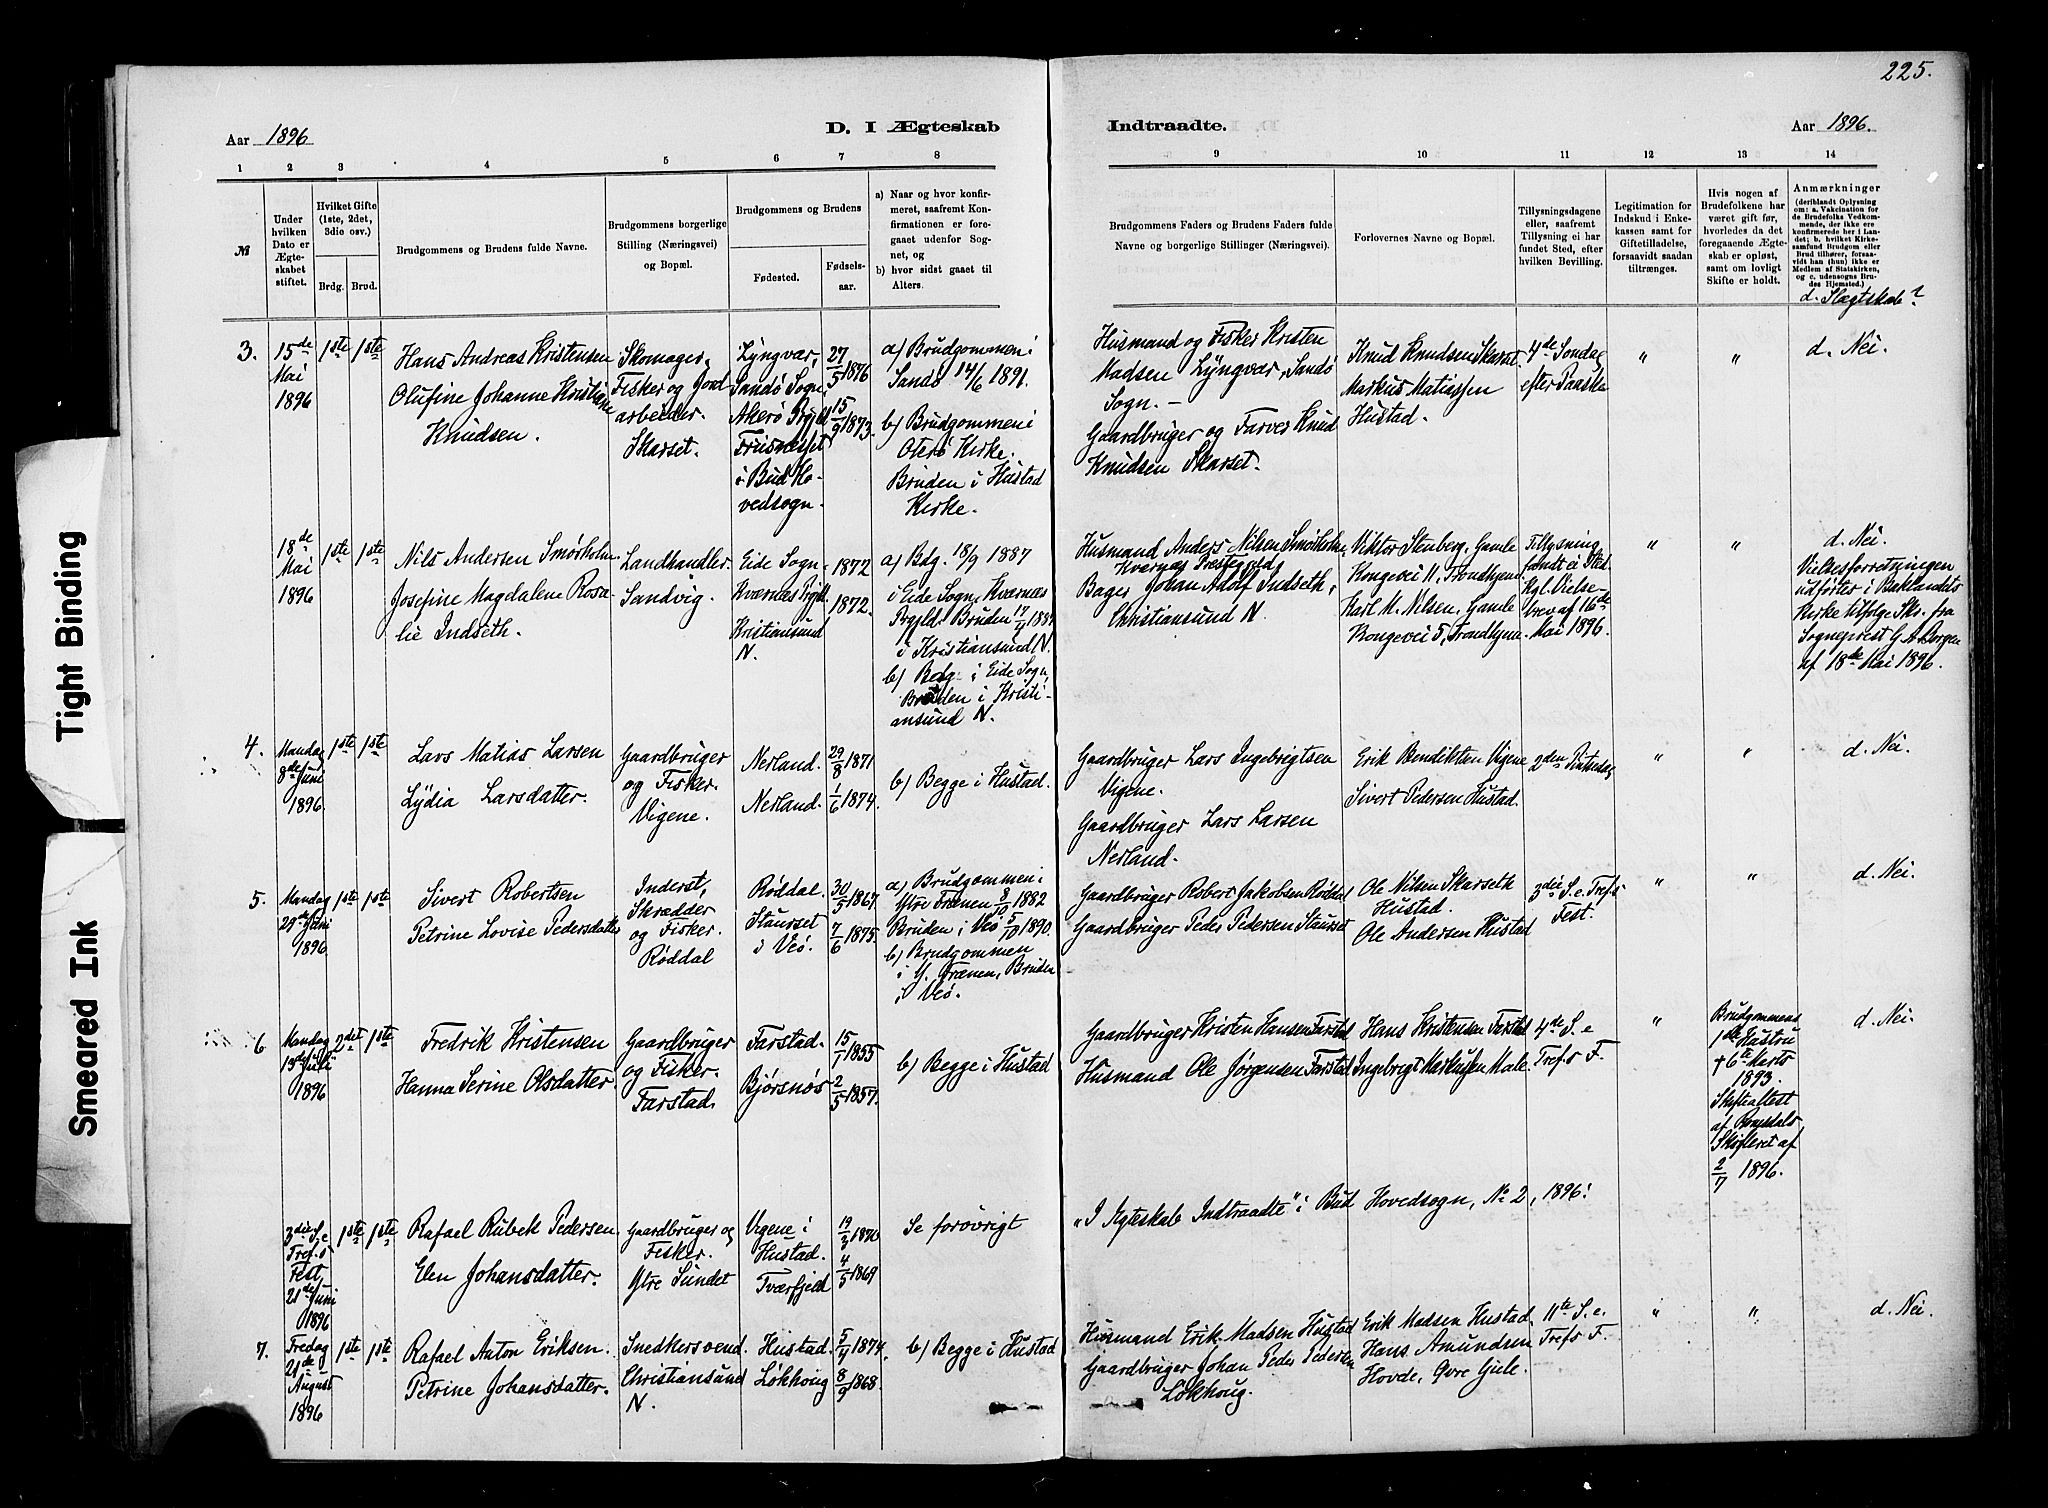 225.
Aar 1896
D. I Ægteskab
Indtraadte.
Aar 1896.
1 2 3 4 5 6 7 8 9 10 11 12 13 14
№
Under
hvilken
Dato er
Ægte-
skabet
stiftet.
Hvilket Gifte
(1ste, 2det,
3die osv.)
Brdg. Brud.
Brudgommens og Brudens fulde Navne.
Brudgommens borgerlige
Stilling (Næringsvei)
og Bopæl.
Brudgommens og Brudens
Fødested.
Fødsels-
aar.
a) Naar og hvor konfir-
meret, saafremt Kon-
firmationen er fore-
gaaet udenfor Sog-
net, og
b) hvor sidst gaaet til
Alters.
Brudgommens Faders og Brudens Faders fulde
Navne og borgerlige Stillinger (Næringsvei).
Forlovernes Navne og Bopæl.
Tillysningsdagene
eller, saafremt
Tillysning ei har
fundet Sted, efter
hvilken Bevilling.
Legitimation for
Indskud i Enke-
kassen samt for
Giftetilladelse,
forsaavidt saadan
tiltrænges.
Hvis nogen af
Brudefolkene har
været gift før,
hvorledes da det
foregaaende Ægte-
skab er opløst,
samt om lovligt
Skifte er holdt.
Anmærkninger
(deriblandt Oplysning
om: a. Vakcination for
de Brudefolks Vedkom-
mende, der ikke ere
konfirmerede her i Lan-
det; b. hvilket Kirke-
samfund Brudgom eller
Brud tilhører, forsaa-
vidt han (hun) ikke er
Medlem af Statskirken,
og c. udensogns Bru-
des Hjemsted.)
d. Slægtskab?
3.
15de
Mai
1896
1ste 1ste
Hans Andreas Kristensen
Olufine Johanne Kristiane
Knudsen.
Skomager,
Fisker og Jord
arbeider.
Skarset.
Lyngvær,
Sandø Sogn,
Akerø Prgjld
Friisnesset
i Bud Ho-
vedsogn.
27/5 1876
15/9 1873.
a) Brudgommen i
Sandø 14/6 1891.
b) Brudgommen i
Oterø Kirke.
Bruden i Hustad
Kirke.
Husmand og Fisker Kristen
Madsen Lyngvær, Sandø
Sogn. —
Gaardbruger og Farver Knud
Knudsen Skarset.
Knud Knudsen Skarset.
Markus Matiassen
Hustad.
4de Søndag
efter Paaske
" "
d. Nei.
18de
Mai
1896
1ste 1ste
Nils Andersen Smørholm.
Josefine Magdalene Rosa-
lie Indseth.
Landhandler.
Sandvig.
Eide Sogn
Kværnæs Prgjld.
Kristiansund
N.
1872
1872.
a) Bdg. 18/9 1887
i Eide Sogn, Kværnæs
Prgjld. Bruden 17/4 1887
i Kristiansund N.
b) Bdg. i Eide Sogn,
Bruden i Kristi-
ansund N.
Husmand Anders Nilsen Smørholm,
Kværnæs Præstegjeld,
Bager Johan Adolf Indseth,
Christiansund N.
Viktor Stenberg, Gamle
Kongevei 11, Trondhjem.
Karl M. Nilsen, Gamle
Kongevei 5, Trondhjem.
Tillysning
fandt ei Sted.
Kgl. Vielse-
brev af 16de
Mai 1896.
" "
d. Nei.
Vielsesforretningen
udførtes i Baklandets
Kirke tilfølge Skr. fra
Sogneprest G. A. Borgen
af 18de Mai 1896.
4.
Mandag
8de Juni
1896
1ste 1ste
Lars Matias Larsen
Lydia Larsdatter.
Gaardbruger
og Fisker.
Vigene.
Nerland.
Nerland.
29/8 1871
1/6 1874.
b) Begge i Hustad.
Gaardbruger Lars Ingebrigtsen
Vigene.
Gaardbruger Lars Larsen
Nerland.
Erik Bendiktsen Vigene
Sivert Pedersen Hustad.
2den Pintsedag
" "
d. Nei.
5.
Mandag
29de Juni
1896
1ste 1ste
Sivert Robertsen
Petrine Lovise Pedersdatter
Inderst,
Skrædder
og Fisker.
Røddal
Røddal.
Staurset
i Veø.
30/5 1867.
7/6 1875.
a) Brudgommen i
Ytre Frænen 8/10 1882
Bruden i Veø 5/10 1890.
b) Brudgommen
i Y. Frænen, Bruden
i Veø.
Gaardbruger Robert Jakobsen Røddal
Gaardbruger Peder Pedersen Staurset
Ole Nilsen Skarseth
Hustad.
Ole Andersen Hustad
3die S. e. Tref.s
Fest.
" "
d. Nei.
6
Mandag
13de Juli
1896
2det 1ste
Fredrik Kristensen
Hanna Serine Olsdatter
Gaardbruger
og Fisker.
Farstad.
Farstad.
Bjørsnøs
15/1 1855
2/5 1857.
b) Begge i Hustad
Gaardbruger Kristen Hansen Farstad
Husmand Ole Jørgensen Farstad
Hans Kristensen Farstad
Ingebrigt Markussen Male.
4de S. e
Tref.s F.
"
Brudgommens
1ste Hustru
† 6te Marts
1893.
Skifteattest
af Romsdals
Skifteret af
2/7 1896.
d. Nei.
3die S. e
Tref.s
Fest,
21de Juni
1896
1ste 1ste
Rafael Rubek Pedersen
Elen Johansdatter.
Gaardbruger og
Fisker.
Ytre Sundet
Vigene i
Hustad.
Tværfjeld
19/3 1870
4/5 1869
Se forøvrigt
„I Ægteskab Indtraadte" i Bud Hovedsogn, № 2, 1896.
7.
Fredag
21de
August
1896
1ste 1ste
Rafael Anton Eriksen.
Petrine Johansdatter.
Snedkersvend.
Christiansund
N.
Hustad.
Løkhoug
5/4 1874.
8/9 1868.
b) Begge i Hustad
Husmand Erik Madsen Hustad
Gaardbruger Johan Peder Pedersen
Løkhoug.
Erik Madsen Hustad
Hans Amundsen
Hovde, Øvre Gjele.
11te S. e.
Tref.s F.
" "
d. Nei.
Tight Binding
Smeared Ink